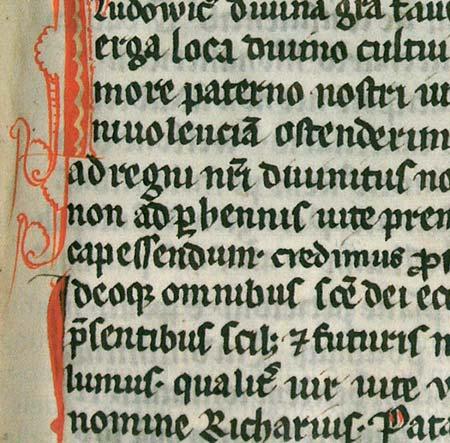 Ludowic̄ diuina gr̄a fau
erga loca diuino cultui
more paterno nostri ut
niuolenciā ostenderim
ad regni nr̄i diuinitus no
non ad ꝑhennis uite prem
capessendum· credimus ꝓf
Ideoqꝫ omnibus sc̄e dei ec
p̄sentibus scilꝫ ⁊ futuris n
lumus· qualit̄ uir uite v
nomine Richarius· Pata